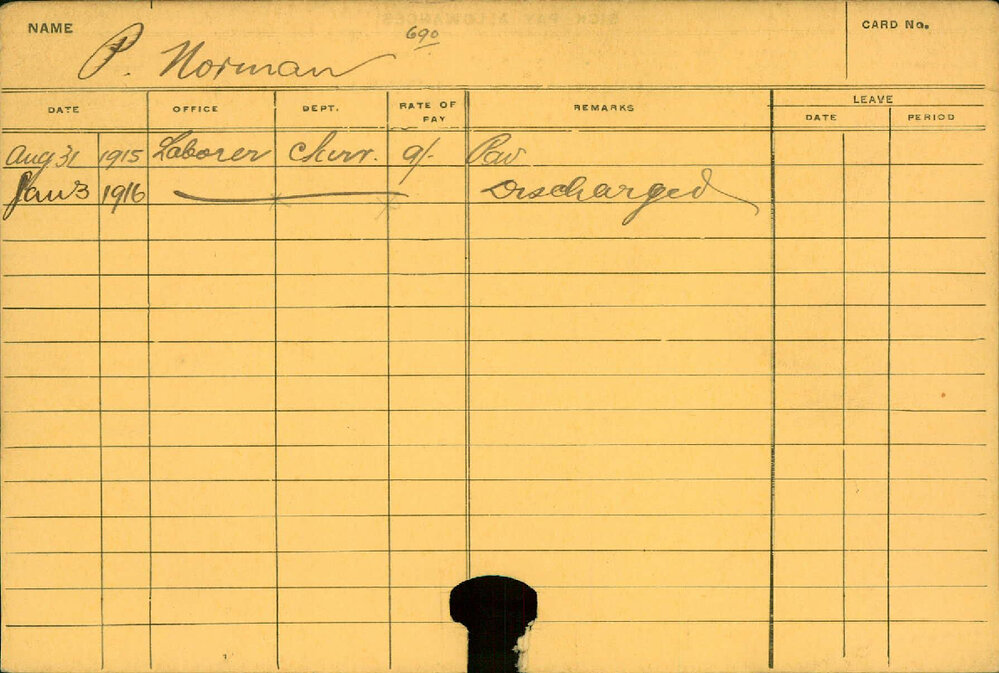 NAME P. Norman 690 CARD No.
DATE OFFICE DEPT. RATE OF PAY REMARKS LEAVE
DATE PERIOD
Aug 31 1915 Laborer 9/-
Jan 3 1916 Discharged